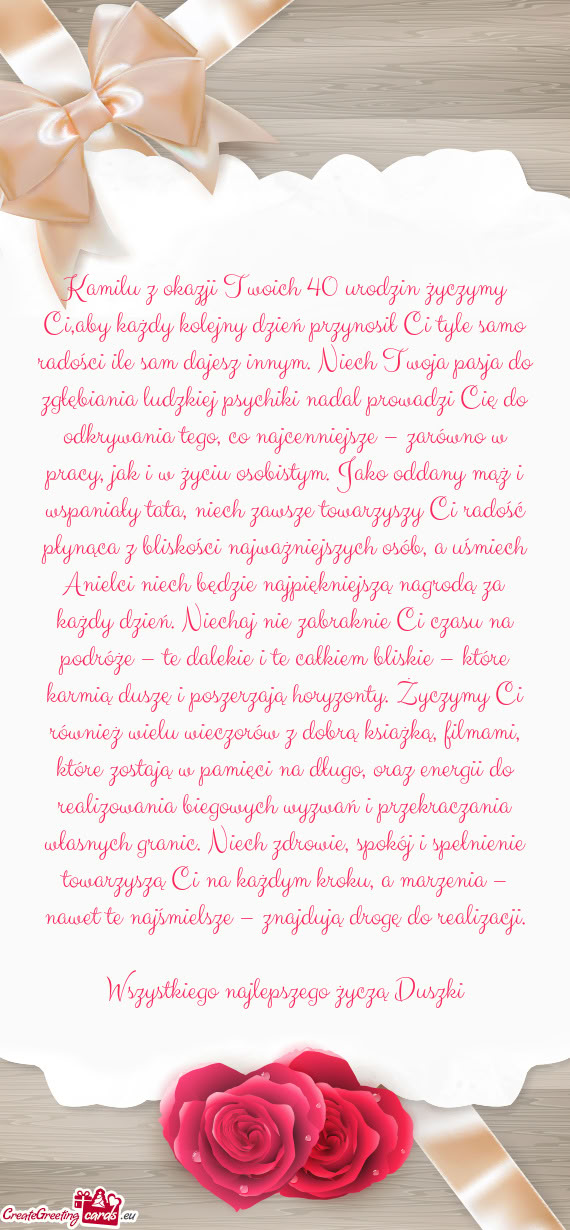 Kamilu z okazji Twoich 40 urodzin życzymy
Ci,aby każdy kolejny dzień przynosił Ci tyle samo
radości ile sam dajesz innym. Niech Twoja pasja do
zgłębiania ludzkiej psychiki nadal prowadzi Cię do
odkrywania tego, co najcenniejsze – zarówno w
pracy, jak i w życiu osobistym. Jako oddany mąż i
wspaniały tata, niech zawsze towarzyszy Ci radość
płynąca z bliskości najważniejszych osób, a uśmiech
Anielci niech będzie najpiękniejszą nagrodą za
każdy dzień. Niechaj nie zabraknie Ci czasu na
podróże – te dalekie i te całkiem bliskie – które
karmią duszę i poszerzają horyzonty. Życzymy Ci
również wielu wieczorów z dobrą książką, filmami,
które zostają w pamięci na długo, oraz energii do
realizowania biegowych wyzwań i przekraczania
własnych granic. Niech zdrowie, spokój i spełnienie
towarzyszą Ci na każdym kroku, a marzenia –
nawet te najśmielsze – znajdują drogę do realizacji.
Wszystkiego najlepszego życzą Duszki
CreateGreeting cards .eu